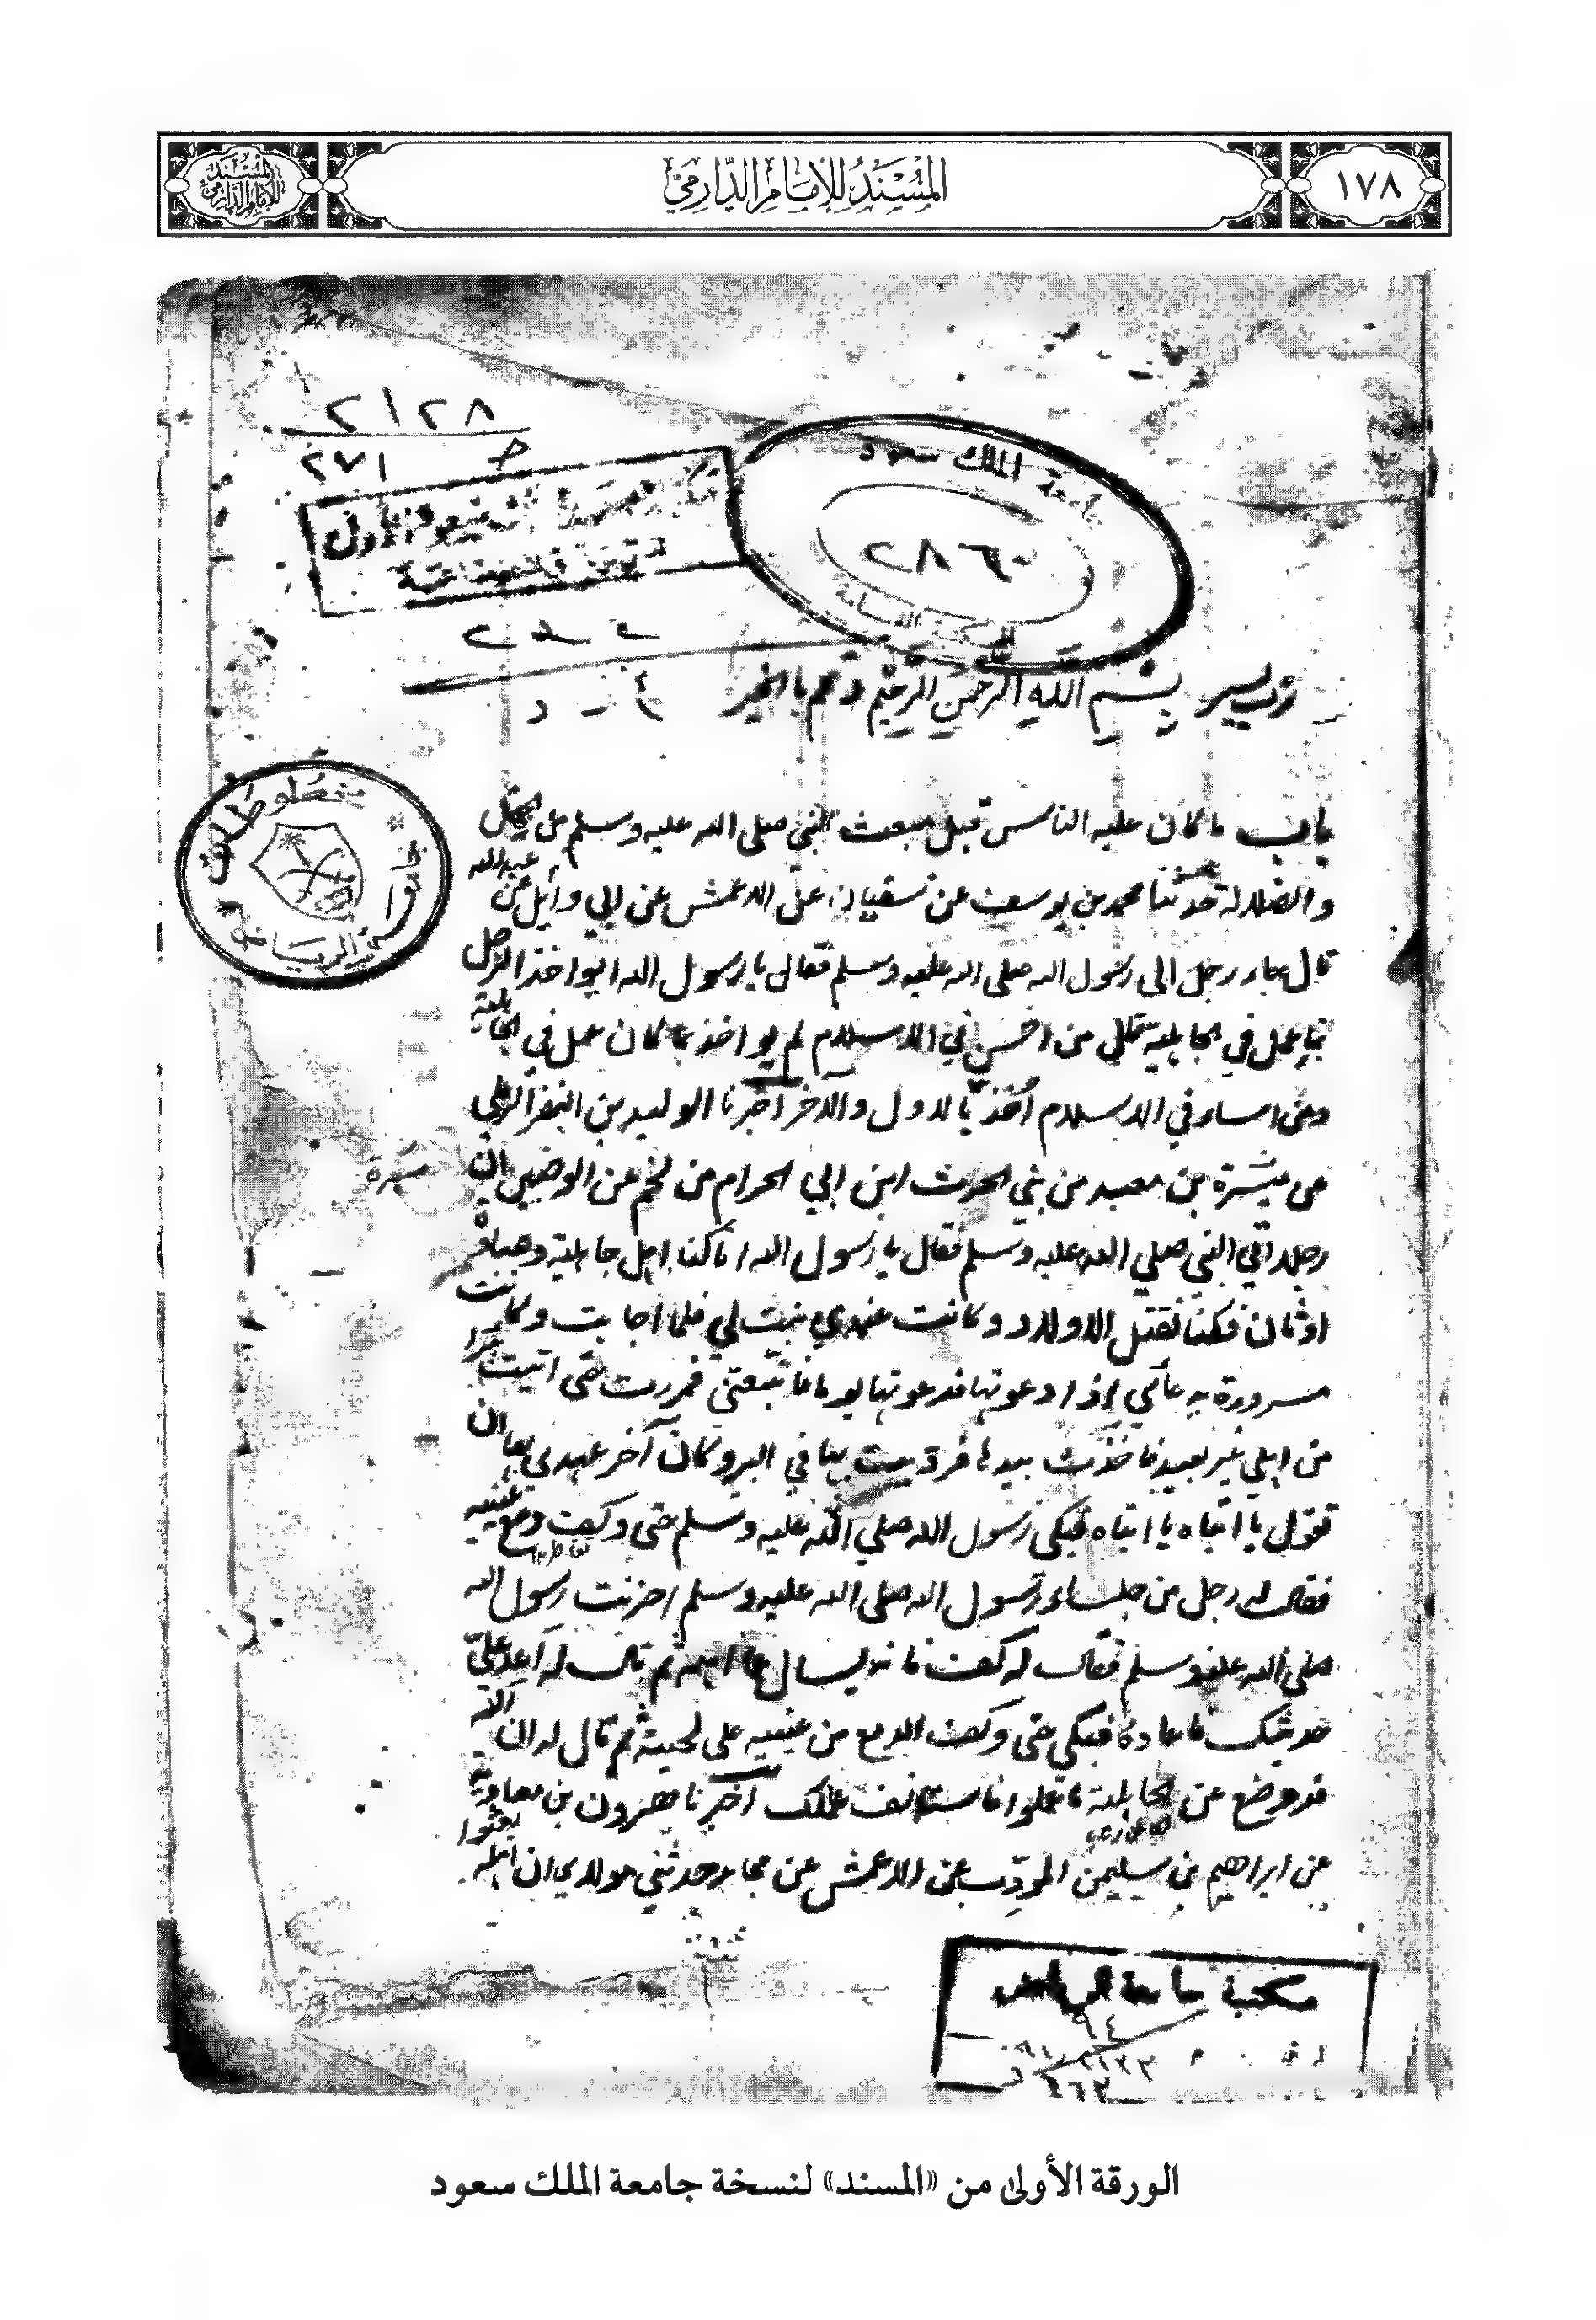 المسند للإمام الدارمي
١٧٨
المُسْنَدُ لِلْإِمَامِ الدَّارِمِيّ
٢١٢٨
٢٧١
الملك سعود
٢٨٦٠
رب يسر بسم الله الرحمن الرحيم وتمم بالخير
مخطوطات
جامعة الرياض
باب ما كان عليه الناس قبل مبعث النبي صلى الله عليه وسلم من الجهل
والضلالة حدثنا محمد بن يوسف عن سفيان عن الاعمش عن ابي وائل عن عبد الله
قال جاء رجل الى رسول الله صلى الله عليه وسلم فقال يا رسول الله ايواخذ الرجل
بما عمل في الجاهلية قال من احسن في الاسلام لم يواخذ بما كان عمل في الجاهلية
ومن اساء في الاسلام اخذ بالاول والاخر اخبرنا الوليد بن النضر الرملي
عن مسرة بن معبد من بني الحرث ابن ابي الحرام من لخم عن الوضين ان
مسرة
رجلا اتى النبي صلى الله عليه وسلم فقال يا رسول الله انا كنا اهل جاهلية وعبادة
اوثان فكنا نقتل الاولاد وكانت عندي بنت لي فلما اجابت وكانت
مسرورة بدعائي اذا دعوتها فدعوتها يوما فاتبعتني فمررت حتى اتيت بئرا
من اهلي غير بعيد فاخذت بيدها فرديت بها في البير وكان آخر عهدي بها ان
تقول يا ابتاه يا ابتاه فبكى رسول الله صلى الله عليه وسلم حتى وكف دمع عينيه
فقال له رجل من جلساء رسول الله صلى الله عليه وسلم احزنت رسول الله
صلى الله عليه وسلم فقال له كف فانه يسال عما اهمه ثم قال له اعد علي
حديثك فاعاده فبكى حتى وكف الدمع من عينيه على لحيته ثم قال له ان الله
قد وضع عن الجاهلية ما عملوا فاستانف عملك اخبرنا هرون بن معاوية
عن ابراهيم بن سليمن المودب عن الاعمش عن مجاهد حدثني مولاي ان اهله بعثوا
مكتبة جامعة الرياض
الورقة الأولى من «المسند» لنسخة جامعة الملك سعود